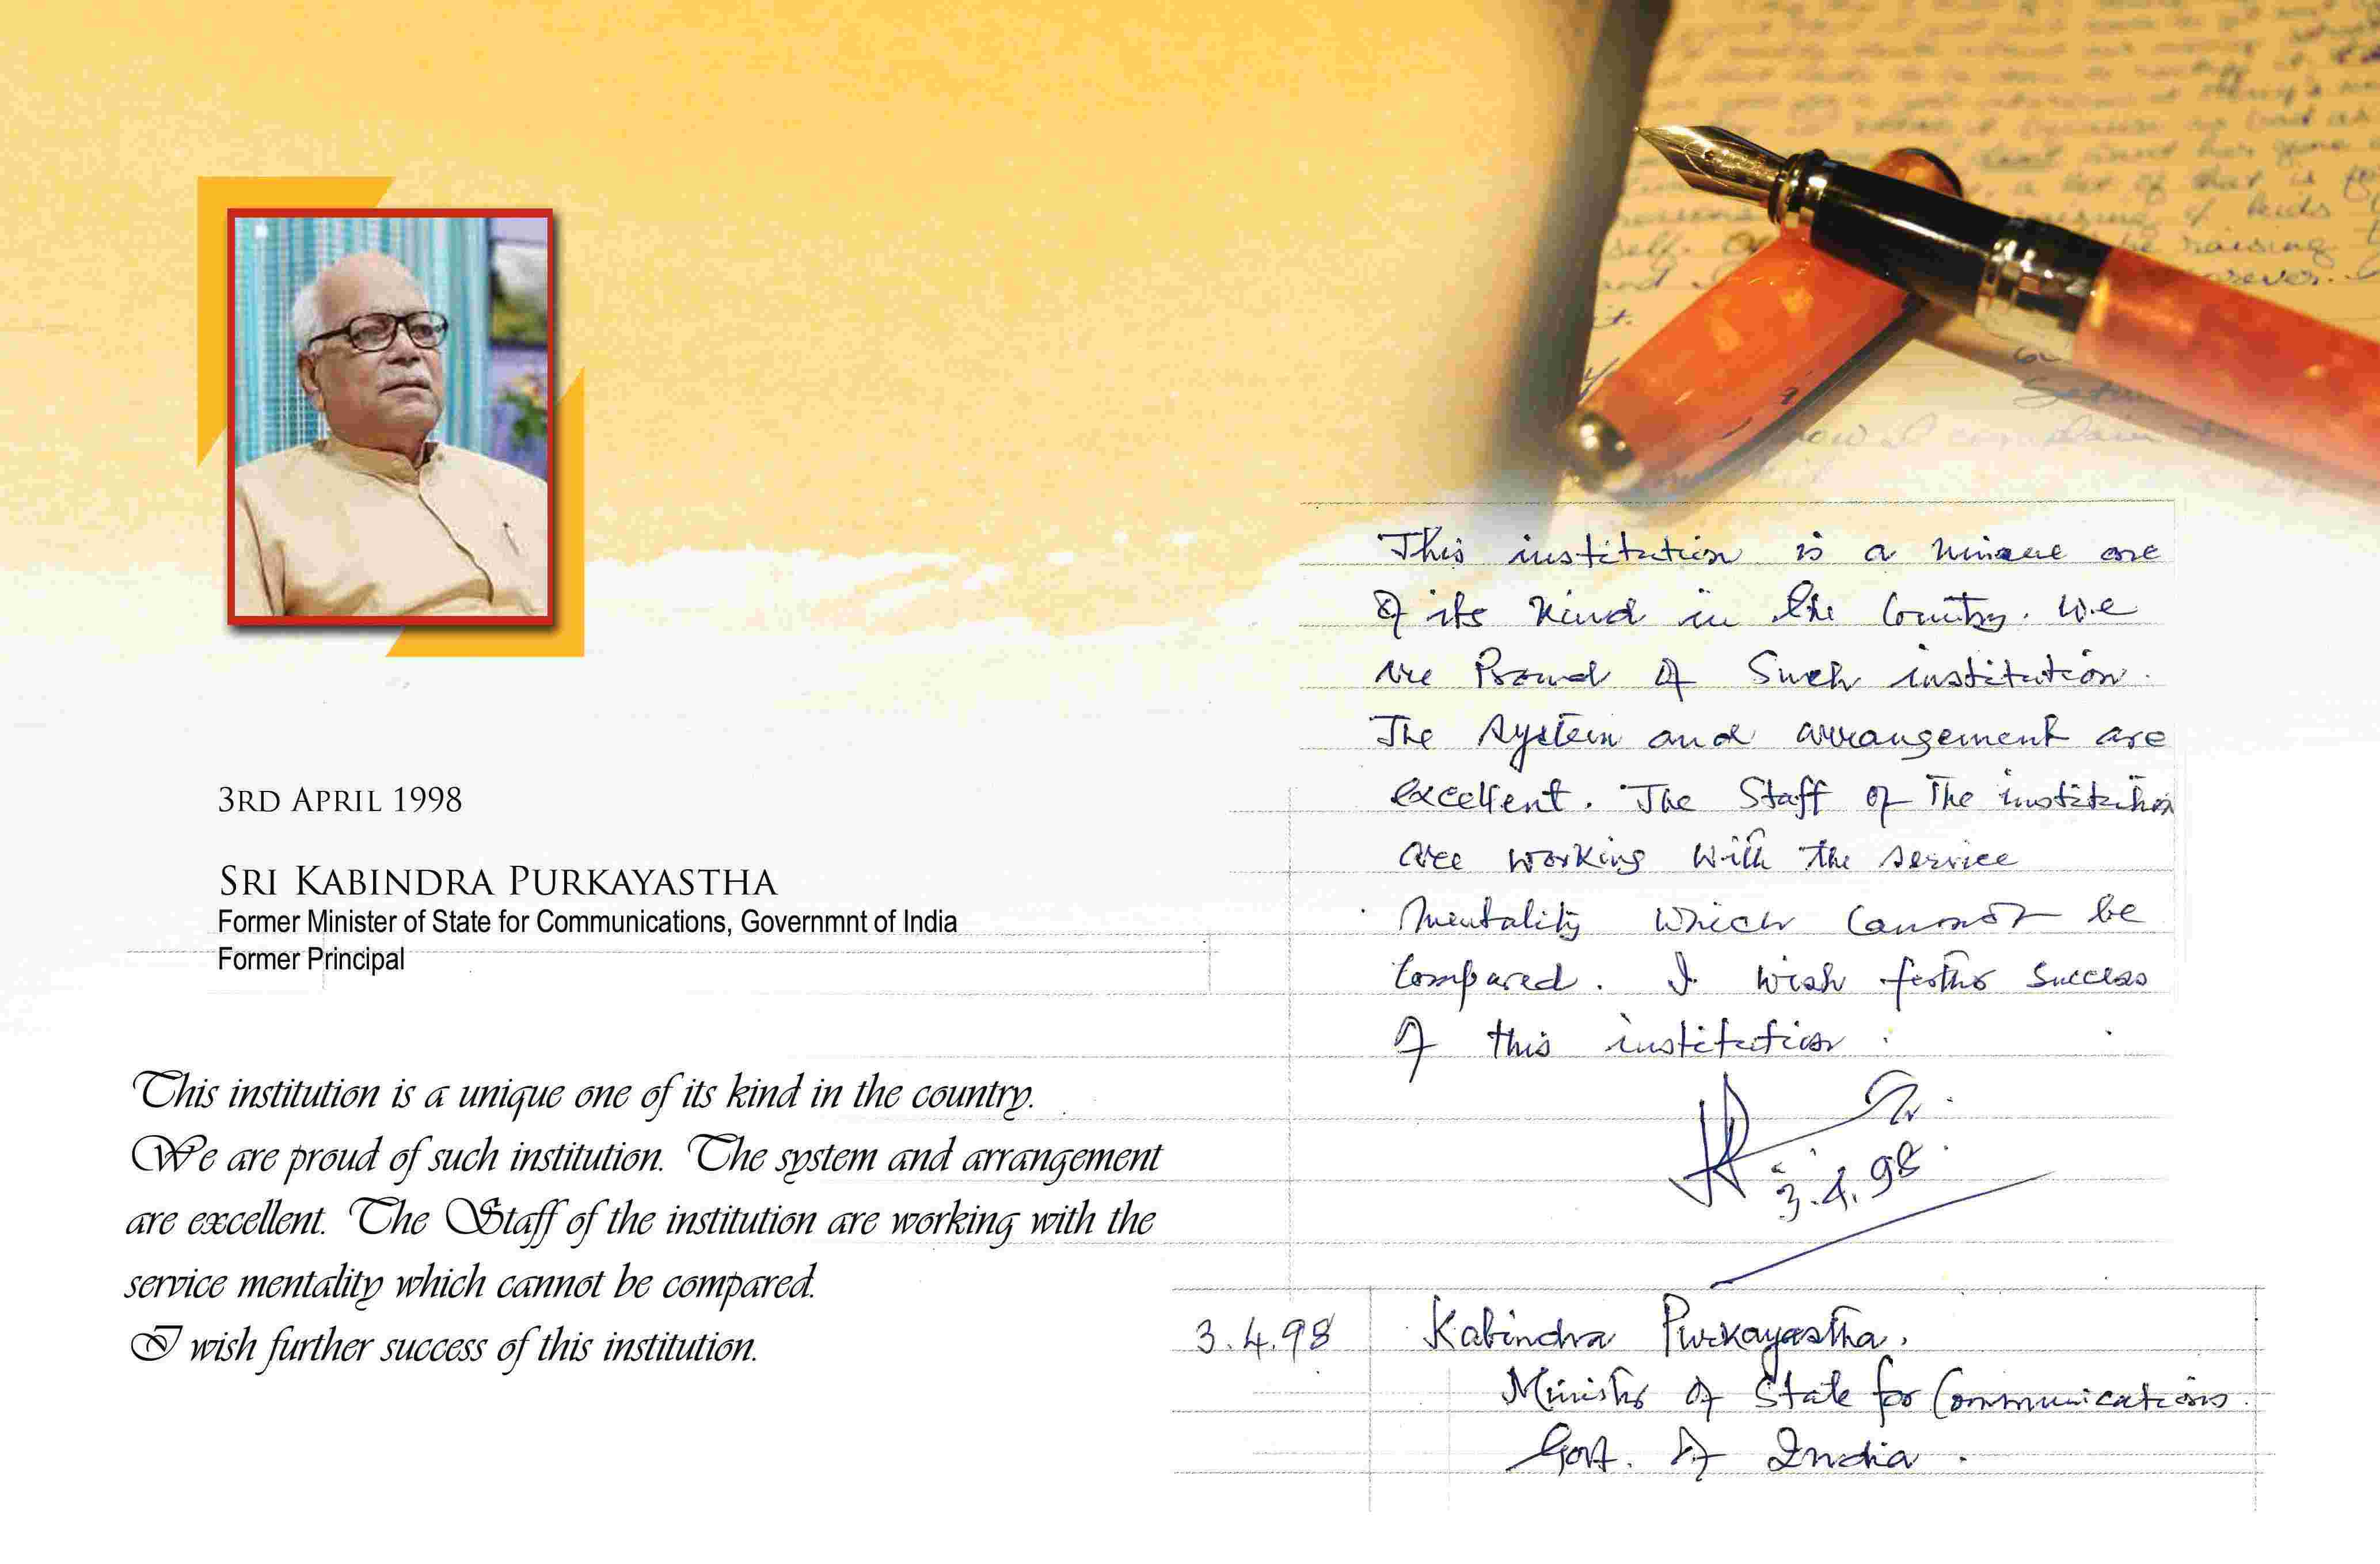 3RD APRIL 1998
SRI KABINDRA PURKAYASTHA
Former Minister of State for Communications, Governmnt of India
Former Principal
This institution is a unique one of its kind in the country.
We are proud of such institution. The system and arrangement
are excellent. The Staff of the institution are working with the
service mentality which cannot be compared.
I wish further success of this institution.
This institution is a unique one
of its kind in the Country. We
are Proud of Such institution.
The system and arrangement are
excellent. The Staff of The institution
are working with the service
mentality which cannot be
compared. I wish further success
of this institution.
3.4.98
3.4.98 Kabindra Purkayastha.
Minister of State for Communications.
Govt. of India.